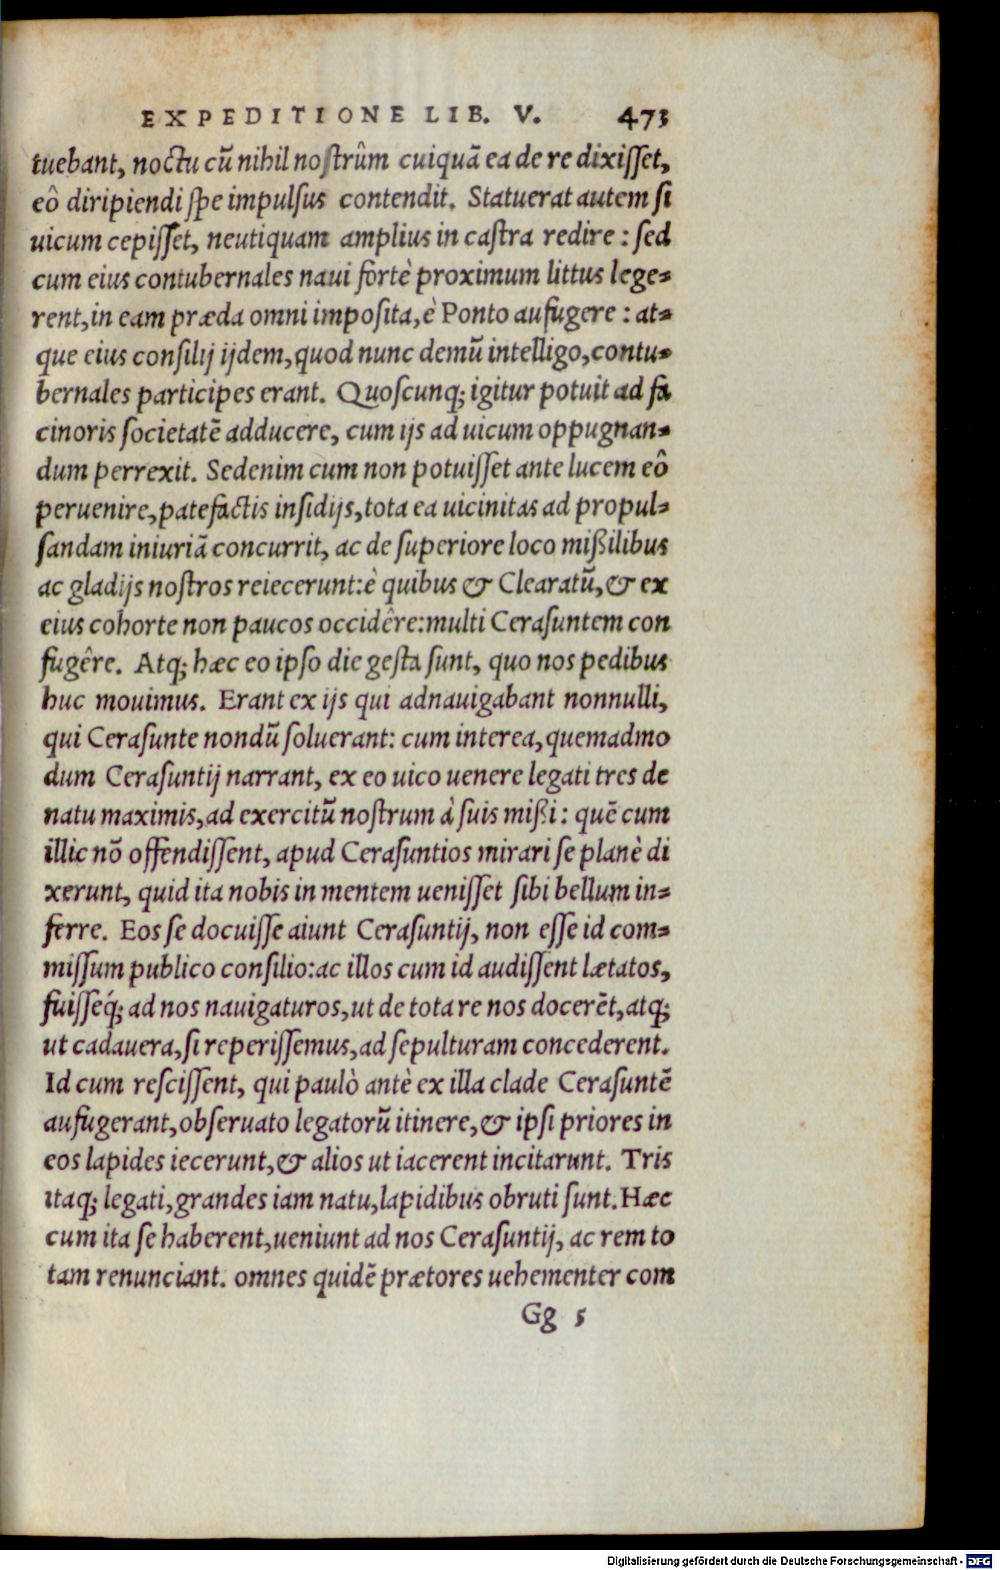 EXPEDITIONE LIB. V. 473
tuebant, noctu cū nihil nostrûm cuiquā ea de re dixisset,
eô diripiendi spe impulsus contendit. Statuerat autem si
uicum cepisset, neutiquam amplius in castra redire : sed
cum eius contubernales naui fortè proximum littus lege-
rent, in eam præda omni imposita, è Ponto aufugere : at-
que eius consilij ijdem, quod nunc demū intelligo, contu-
bernales participes erant. Quoscunq; igitur potuit ad fa
cinoris societatē adducere, cum ijs ad uicum oppugnan-
dum perrexit. Sedenim cum non potuisset ante lucem eô
peruenire, patefactis insidijs, tota ea uicinitas ad propul-
sandam iniuriā concurrit, ac de superiore loco mißilibus
ac gladijs nostros reiecerunt: è quibus & Clearatū, & ex
eius cohorte non paucos occidêre: multi Cerasuntem con
fugêre. Atq; hæc eo ipso die gesta sunt, quo nos pedibus
huc mouimus. Erant ex ijs qui adnauigabant nonnulli,
qui Cerasunte nondū soluerant: cum interea, quemadmo
dum Cerasuntij narrant, ex eo uico uenere legati tres de
natu maximis, ad exercitū nostrum à suis mißi : quē cum
illic nō offendissent, apud Cerasuntios mirari se planè di
xerunt, quid ita nobis in mentem uenisset sibi bellum in-
ferre. Eos se docuisse aiunt Cerasuntij, non esse id com-
missum publico consilio: ac illos cum id audissent lætatos,
fuisseq́; ad nos nauigaturos, ut de tota re nos docerēt, atq;
ut cadauera, si reperissemus, ad sepulturam concederent.
Id cum rescissent, qui paulò antè ex illa clade Cerasuntē
aufugerant, obseruato legatorū itinere, & ipsi priores in
eos lapides iecerunt, & alios ut iacerent incitarunt. Tris
itaq; legati, grandes iam natu, lapidibus obruti sunt. Hæc
cum ita se haberent, ueniunt ad nos Cerasuntij, ac rem to
tam renunciant. omnes quidē prætores uehementer com
Gg 5
Digitalisierung gefördert durch die Deutsche Forschungsgemeinschaft - DFG